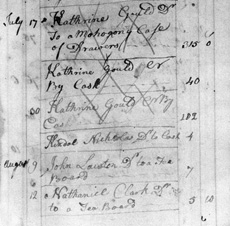 July 17 Kathrine Gould Dr
To a Mahogony Case
of Drawers 315 0
Kathrine Gould Cr
By Cash 40
30 Kathrine Gould Cr By
Cas 102
Nicholas Dr to Cash 4
August 9 John Dr to a Tea
Board 7
12 Nathaniel Clark Dr
to a Tea Board 5 10